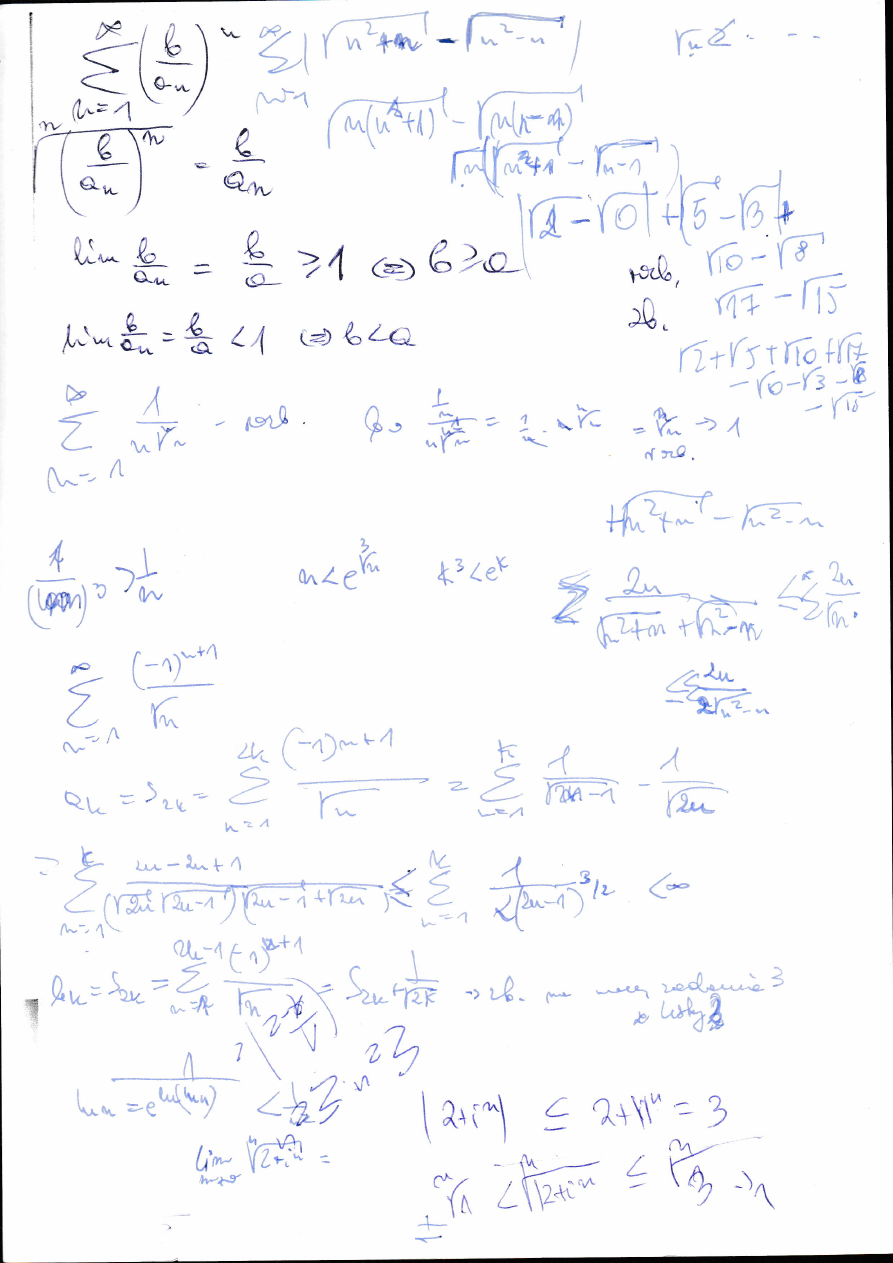 ∑_{n=1}^{∞} (b/a_n)^n   ∑_{n=1}^{∞} |√(n²+n) - √(n²-n)|
√(n(n²+1)) - √(n(n-1))
ⁿ√((b/a_n)^n) = b/a_n
√n(√(n²+1) - √(n-1))
|√2 - √0| + |√5 - √3| +
lim b/a_n = b/a ≥ 1 ⇔ b ≥ a   rozb. √10 - √8
zb. √17 - √15
lim b/a_n = b/a < 1 ⇔ b < a
√2 + √5 + √10 + √17
- √0 - √3 - √8
- √15
∑_{n=1}^{∞} 1/(n ⁿ√n) - rozb. bo (1/n)/(1/(n ⁿ√n)) = 1/n · n ⁿ√n = ⁿ√n → 1
rozb.
√(n²+n) - √(n²-n)
1/(ln n)³ > 1/n   n < e^{³√n}   k³ < e^k
∑ 2n/(√(n²+n) + √(n²-n)) ≤ ∑ 2n/√n
≤ ∑ 2n/(2√(n²-n))
∑_{n=1}^{∞} (-1)^{n+1}/√n
a_k = S_{2k} = ∑_{n=1}^{2k} (-1)^{n+1}/√n = ∑_{n=1}^{k} 1/√(2n-1) - 1/√(2n)
= ∑_{n=1}^{k} (2n-2n+1)/((√2n √(2n-1))(√(2n-1)+√2n)) ≤ ∑_{n=1}^{k} 1/(2(2n-1)^{3/2}) < ∞
b_k = S_{2k} = ∑_{n=1}^{2k-1} (-1)^{n+1}/√n = S_{2k} + 1/√(2k) → zb. na mocy zadania 3
z listy 2
1/(ln n = e^{ln(ln n)}) <
|2+iⁿ| ≤ 2+|1|ⁿ = 3
lim_{n→∞} ⁿ√(2+iⁿ) =
ⁿ√1 < ⁿ√|2+iⁿ| ≤ ⁿ√3 → 1